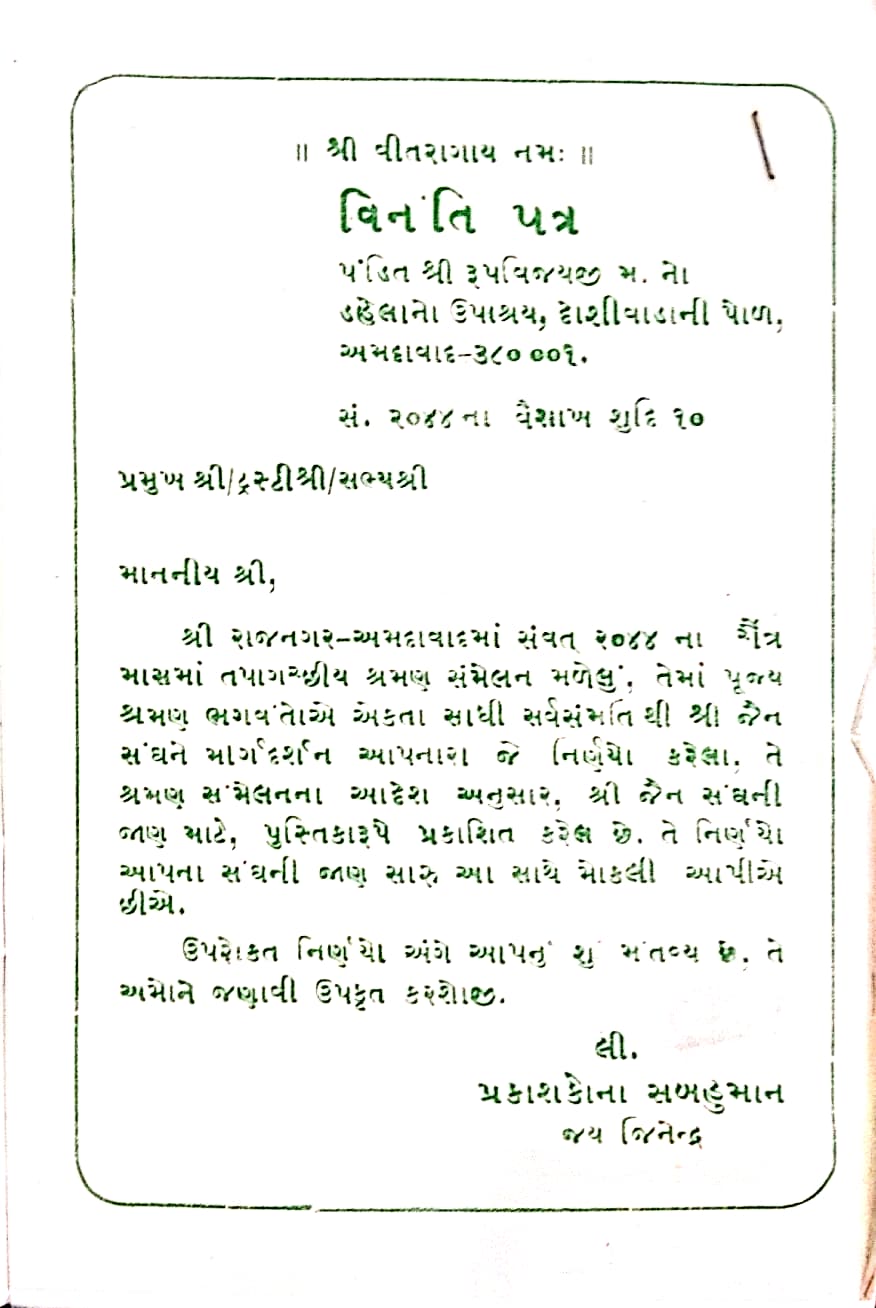 ॥ શ્રી વીતરાગાય નમઃ ॥
વિનંતિ પત્ર
પંડિત શ્રી રૂપવિજયજી મ. નો
ડહેલાનો ઉપાશ્રય, દોશીવાડાની પોળ,
અમદાવાદ-૩૮૦ ૦૦૧.
સં. ૨૦૪૪ ના વૈશાખ શુદિ ૧૦
પ્રમુખ શ્રી/ટ્રસ્ટીશ્રી/સભ્યશ્રી
માનનીય શ્રી,
શ્રી રાજનગર-અમદાવાદમાં સંવત્ ૨૦૪૪ ના ચૈત્ર
માસમાં તપાગચ્છીય શ્રમણ સંમેલન મળેલું. તેમાં પૂજ્ય
શ્રમણ ભગવંતોએ એકતા સાધી સર્વસંમતિથી શ્રી જૈન
સંઘને માર્ગદર્શન આપનારા જે નિર્ણયો કરેલા, તે
શ્રમણ સંમેલનના આદેશ અનુસાર, શ્રી જૈન સંઘની
જાણ માટે, પુસ્તિકારૂપે પ્રકાશિત કરેલ છે. તે નિર્ણયો
આપના સંઘની જાણ સારુ આ સાથે મોકલી આપીએ
છીએ.
ઉપરોક્ત નિર્ણયો અંગે આપનું શું મંતવ્ય છે, તે
અમોને જણાવી ઉપકૃત કરશોજી.
લી.
પ્રકાશકોના સબહુમાન
જય જિનેન્દ્ર